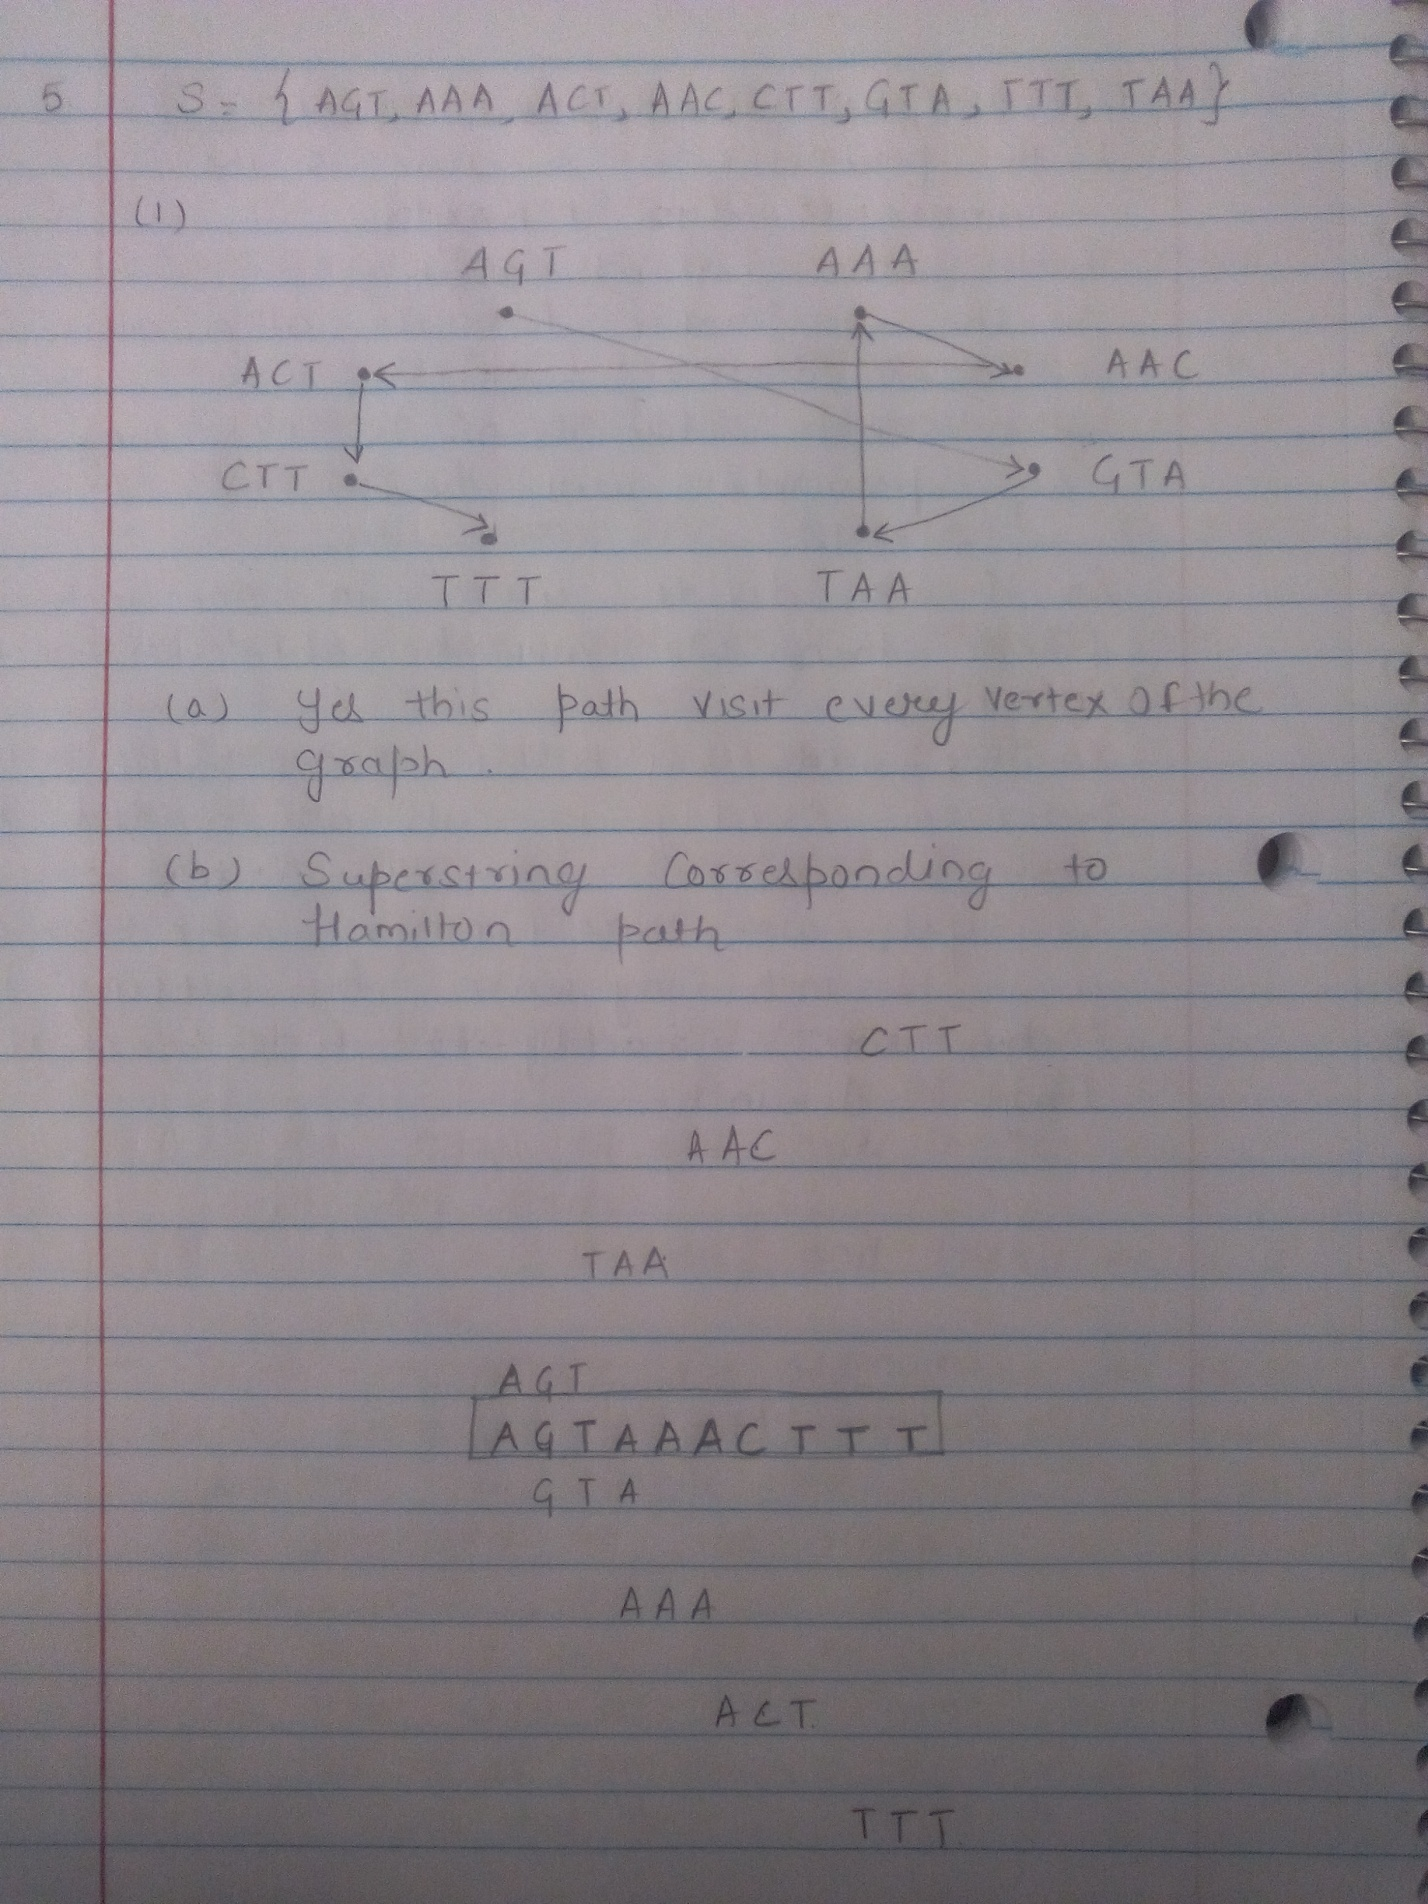 5 S = { AGT, AAA, ACT, AAC, CTT, GTA, TTT, TAA}
(1)
AGT AAA
ACT AAC
CTT GTA
TTT TAA
(a) Yes this path visit every vertex of the
graph.
(b) Superstring Corresponding to
Hamilton path
CTT
AAC
TAA
AGT
AGTAAACTTT
GTA
AAA
ACT
TTT